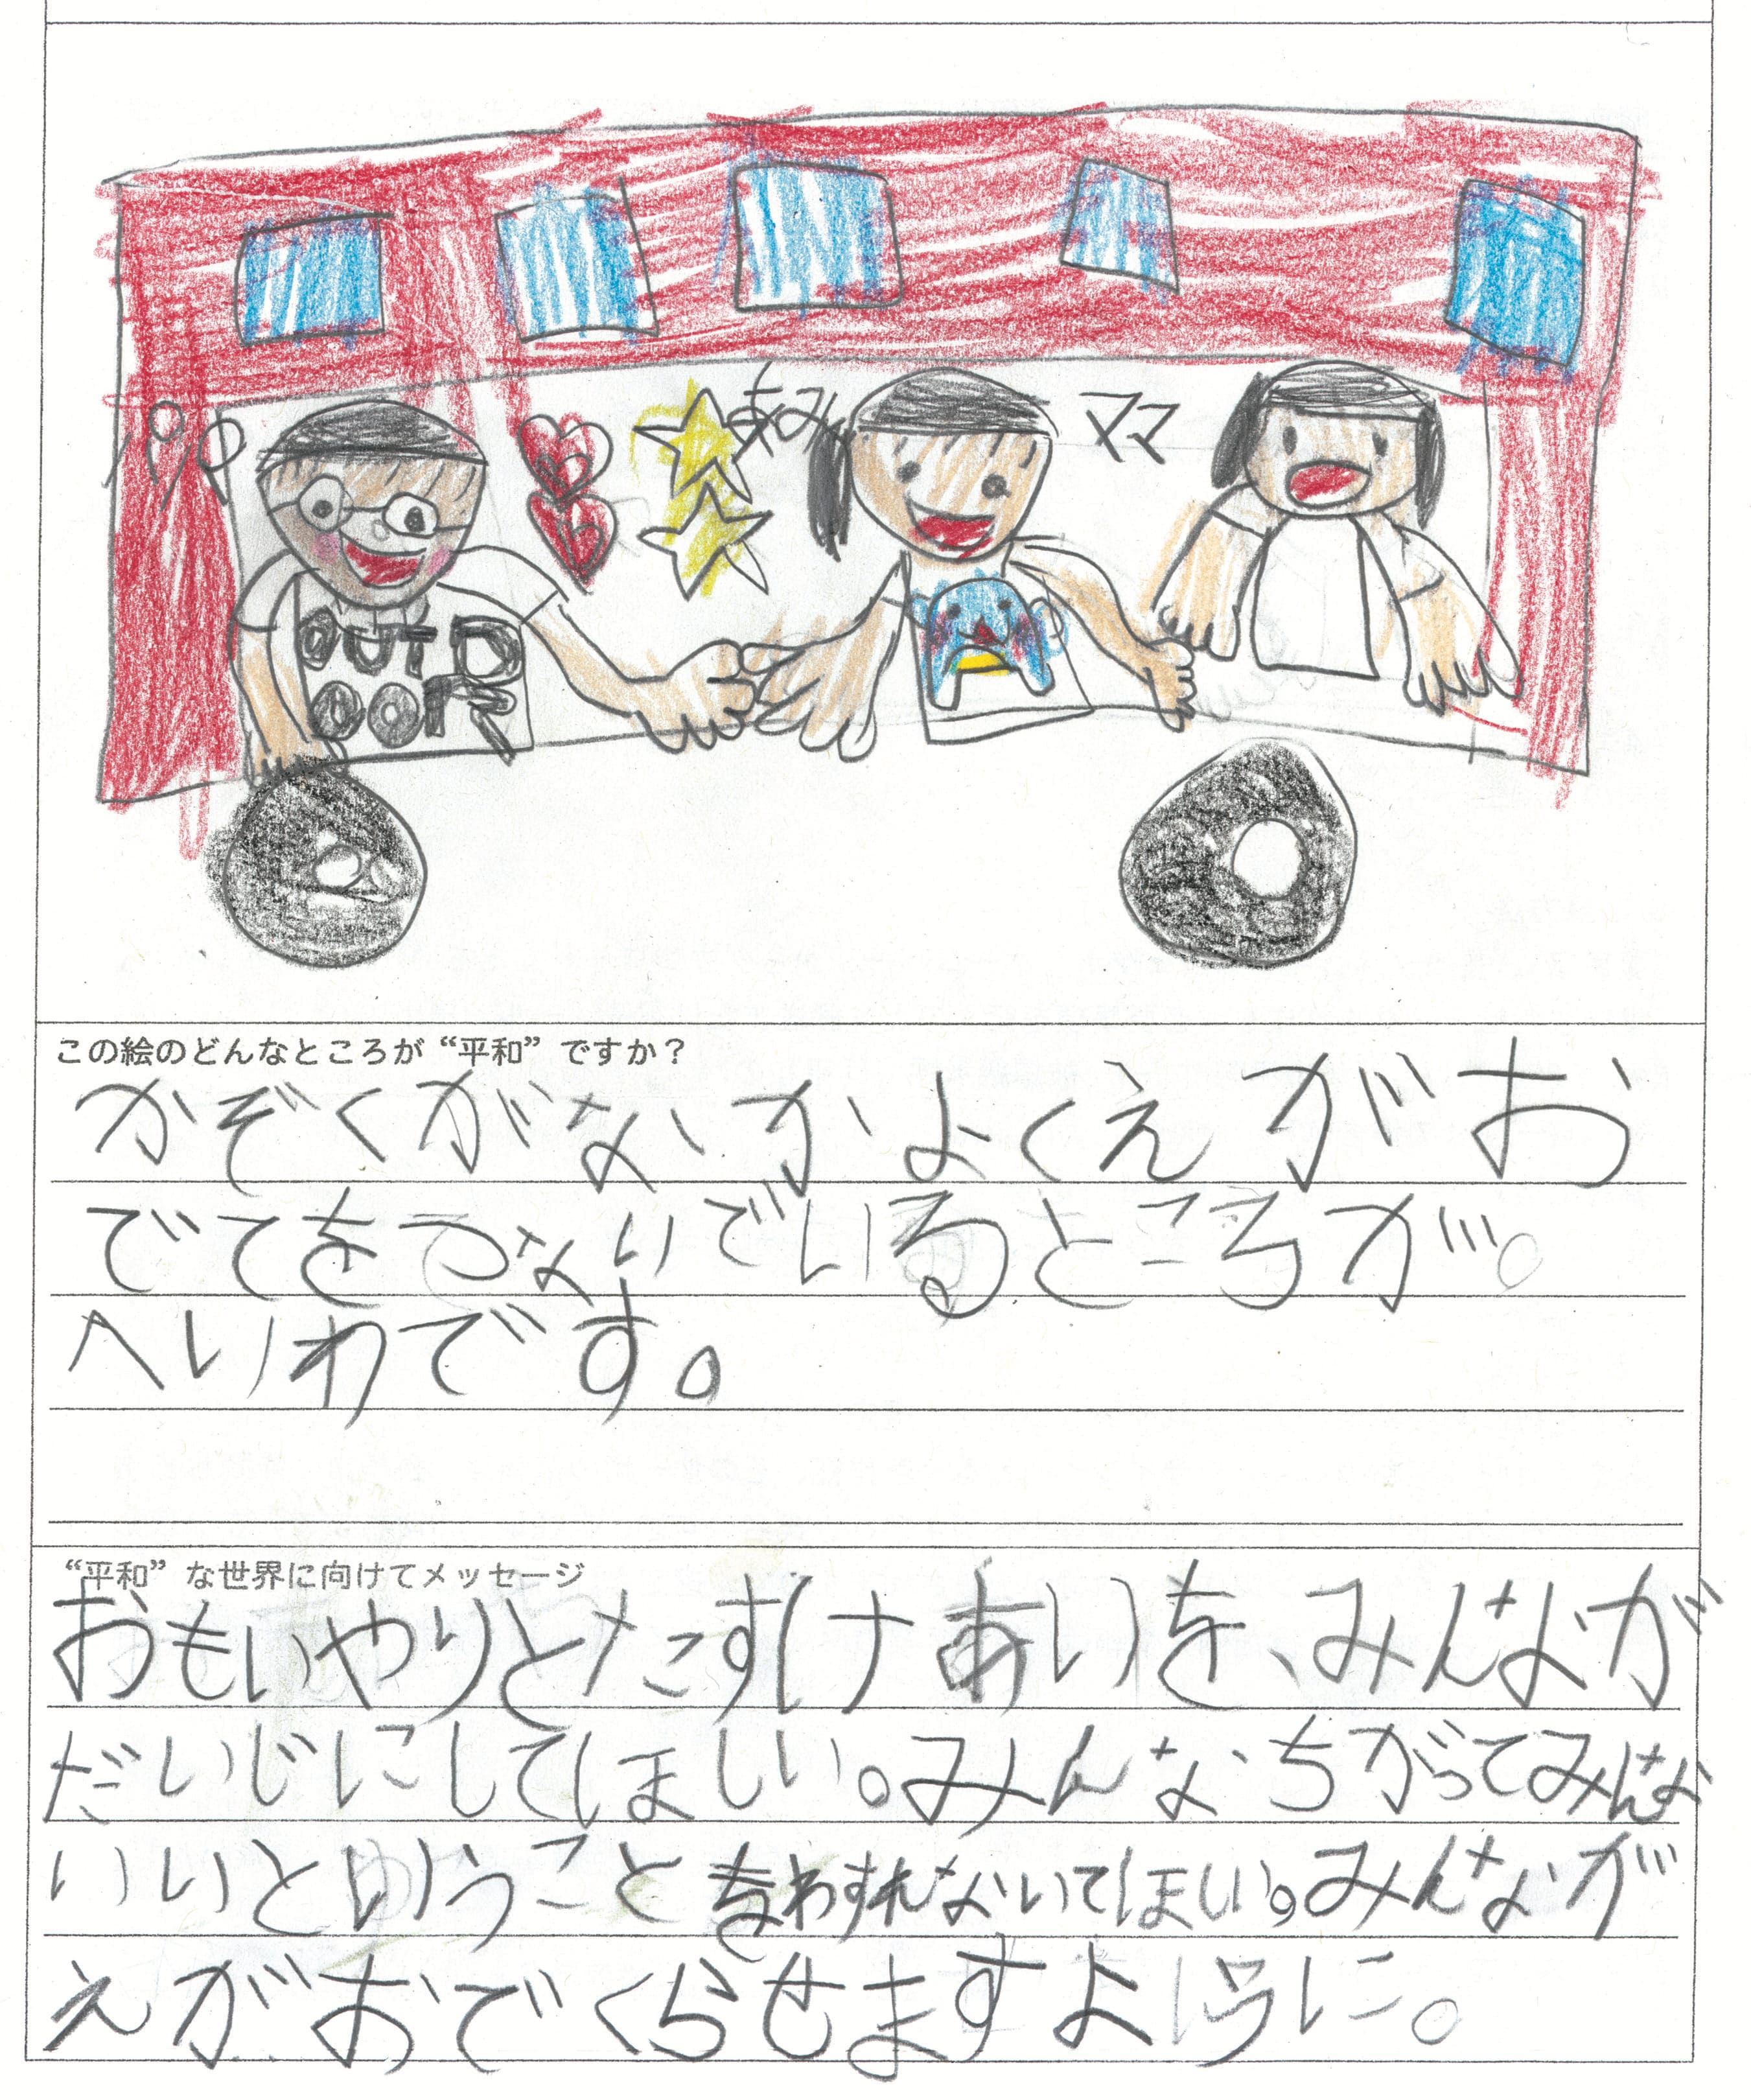 パパ
あみ
ママ
OUTD
OOR
この絵のどんなところが“平和”ですか？
かぞくがなかよくえがお
でてをつないでいるところが。
へいわです。
“平和”な世界に向けてメッセージ
おもいやりとたすけあいを、みんなが
だいじにしてほしい。みんなちがってみんな
いいということをわすれないでほしい。みんなが
えがおでくらせますように。